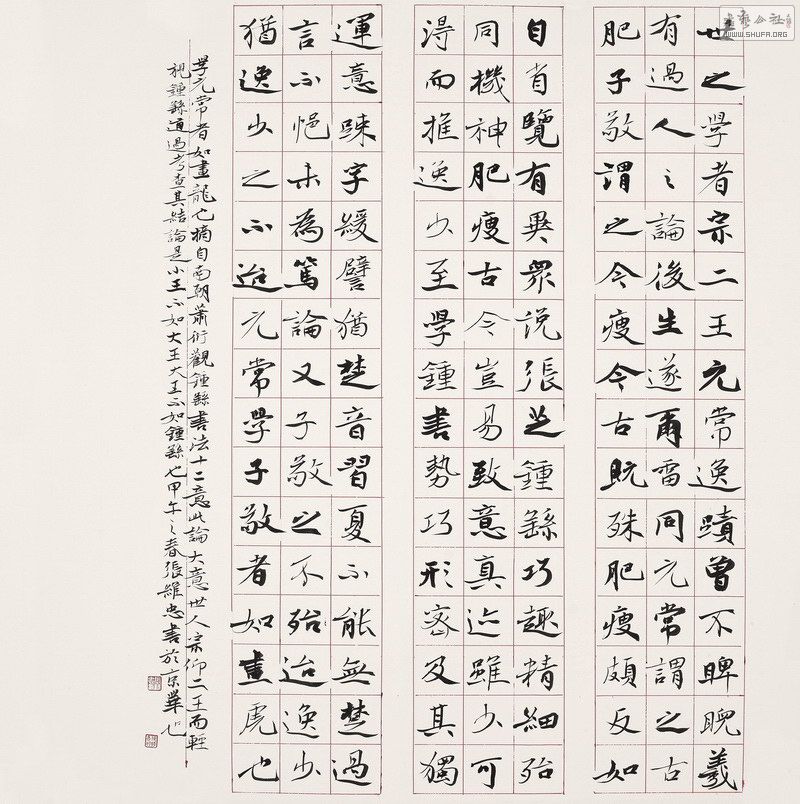 世之學者宗二王元常逸蹟曾不睥睨羲
有過人之論後生遂爾雷同元常謂之古
肥子敬謂之今瘦今古既殊肥瘦頗反如
自省覽有異眾說張芝鍾繇巧趣精細殆
同機神肥瘦古今豈易致意真迹雖少可
得而推逸少至學鍾書勢巧形密及其獨
運意疎字緩譬猶楚音習夏不能無楚過
言不悒未為篤論又子敬之不殆迨逸少
猶逸少之不迨元常學子敬者如畫虎也
學元常者如畫龍也摘自南朝蕭衍觀鍾繇書法十二意此論大意世人宗仰二王而輕
視鍾繇通過考查其結論是小王不如大王大王不如鍾繇也甲午之春張維忠書於京華
書藝公社
WWW.SHUFA.ORG